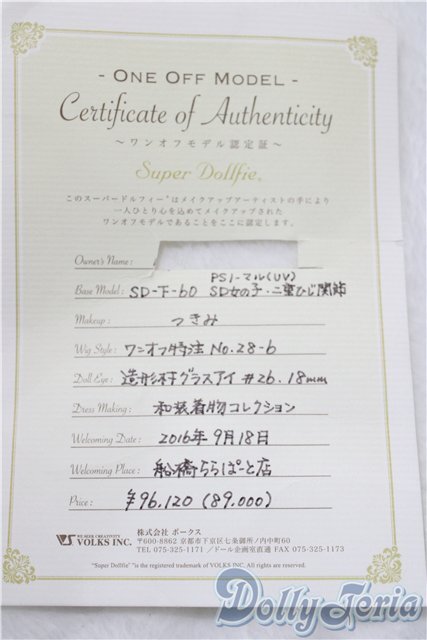 - ONE OFF MODEL -
Certificate of Authenticity
～ワンオフモデル認定証～
Super Dollfie®
このスーパードルフィー®はメイクアップアーティストの手により
一人ひとり心を込めてメイクアップされた
ワンオフモデルであることをここに認定します。
Owner's Name :
PSノーマル(UV)
Base Model : SD-下-60 SD女の子・二重ひじ関節
Makeup : つきみ
Wig Style : ワンオフ特注 No.28-6
Doll Eye : 造形村グラスアイ #26.18mm
Dress Making : 和装着物コレクション
Welcoming Date : 2016年9月18日
Welcoming Place : 船橋ららぽーと店
Price : ¥96,120 (89,000)
WE BEER CREATIVITY
VS VOLKS INC.
株式会社 ボークス
〒600-8862 京都市下京区七条御所ノ内中町60
TEL 075-325-1171 ／ドール企画室直通 FAX 075-325-1173
"Super Dollfie" is the registered trademark of VOLKS INC. All rights are reserved.
Dolly Teria